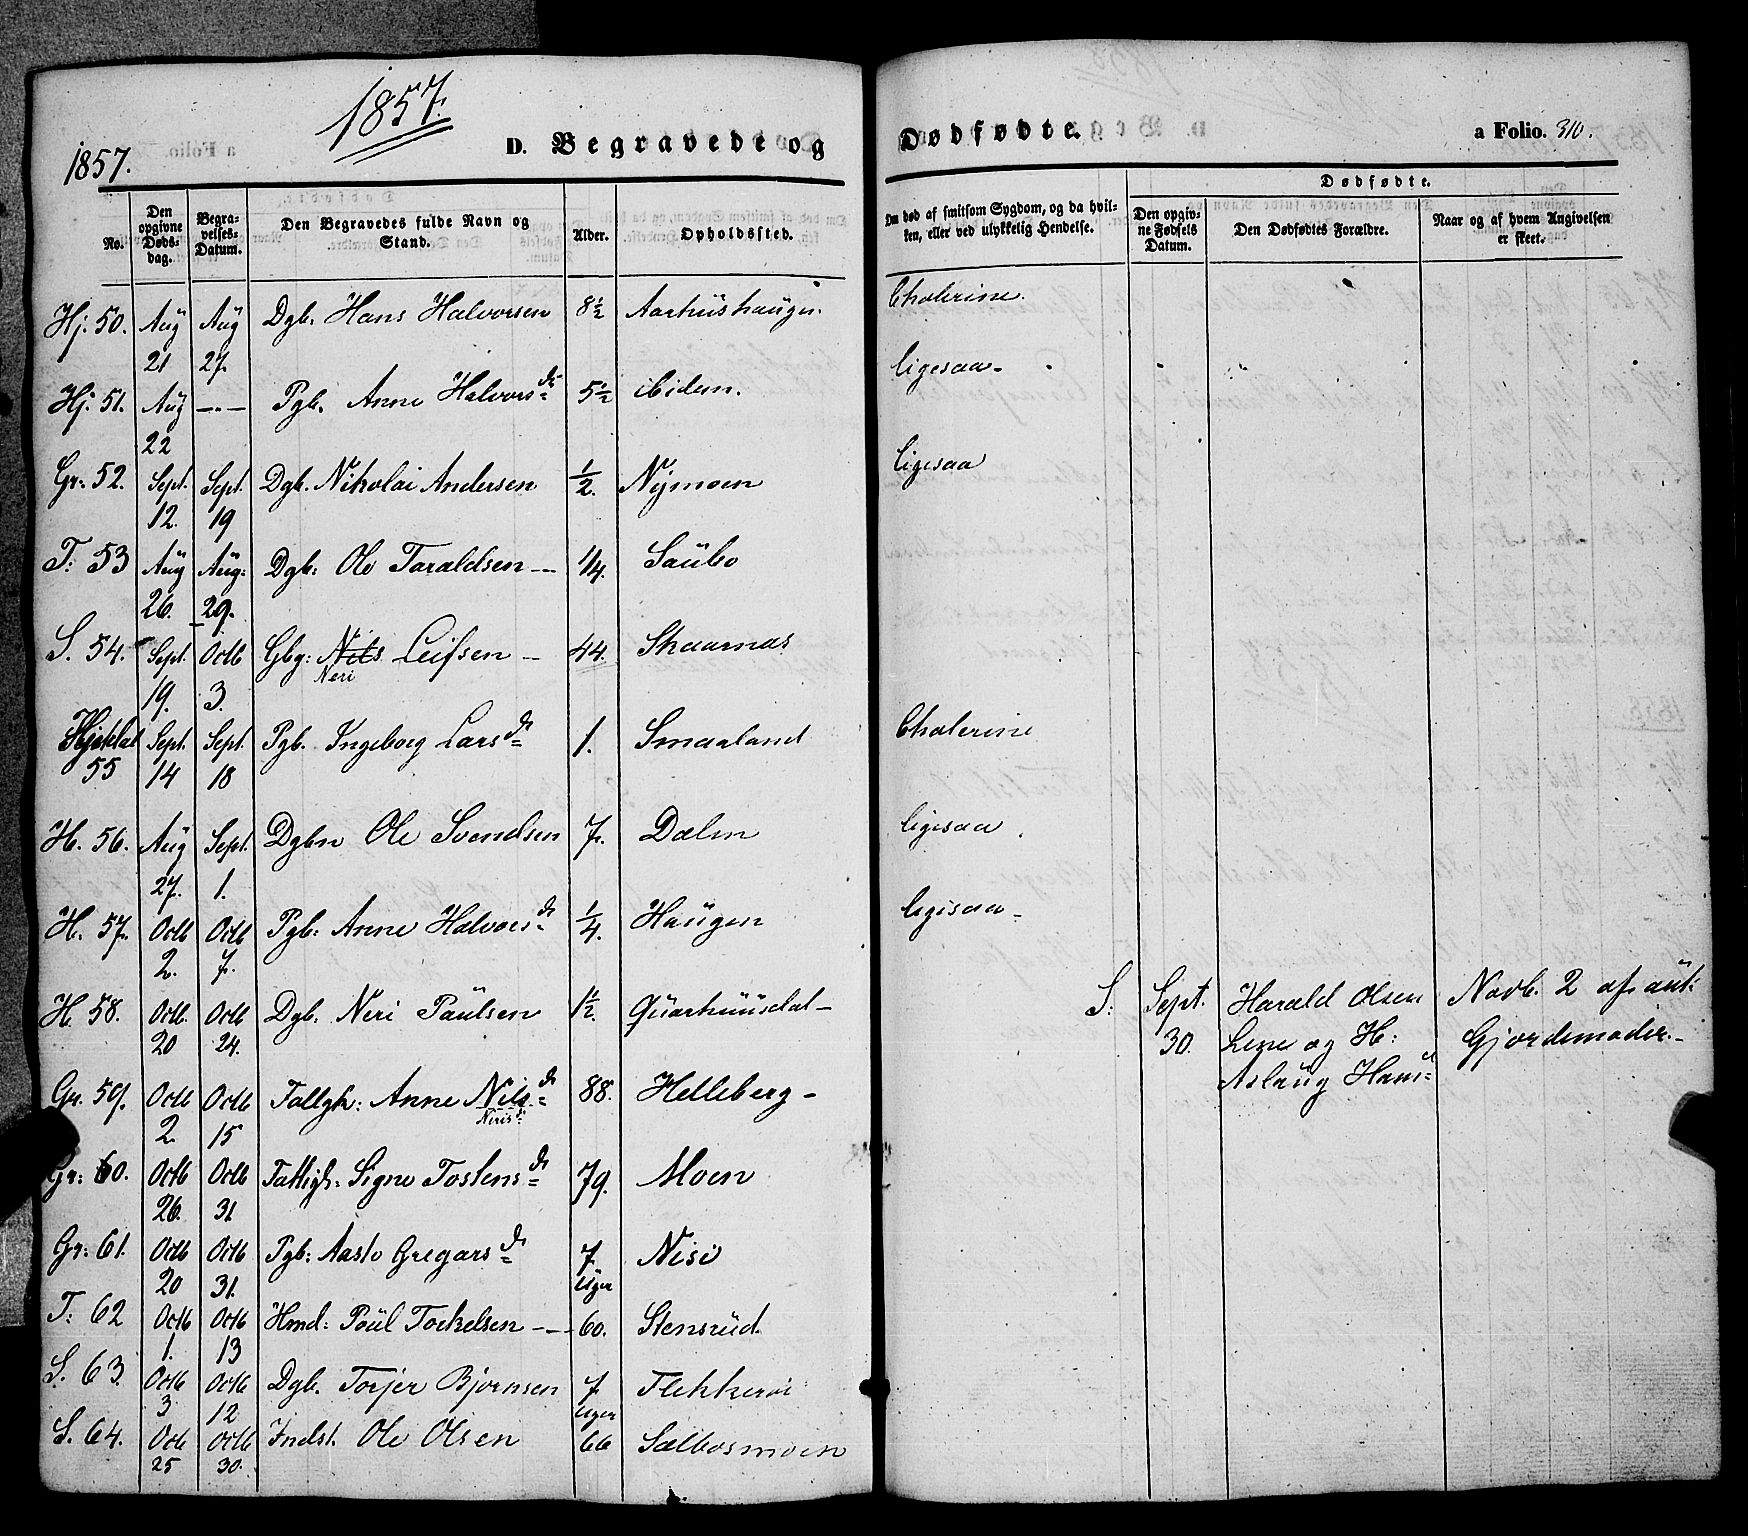 1857.
1857.
D. Begravede og Dødfødte.
a Folio. 310.
No.
Den opgivne Døds-dag.
Begra-velses-Datum.
Den Begravedes fulde Navn og Stand.
Alder.
Opholdssted.
Om død af smitsom Sygdom, og da hvil-ken, eller ved ulykkelig Hendelse.
Dødfødte.
Den opgiv-ne Fødsels Datum.
Den Dødfødtes Forældre.
Naar og af hvem Angivelsen er skeet.
Hj. 50. Aug 21 Aug 27. Dgb. Hans Halvorsen 8½ Aarhüshaugen. Cholerine.
Hj. 51. Aug 22 -"- Pgb. Anne Halvorsdr 5½ ibidem. ligesaa-
Gr: 52. Sept. 12. Sept. 19 Dgb. Nikolai Andersen ½. Nymoen ligesaa
T: 53 Aug 26. Aug: 29. Dgb: Ole Taraldsen -- 1/4. Saübo
S. 54. Sept. 19. Octb 3. Gbg: Nils Neri Leifsen - 44. Skaarnas
Hjokdal 55 Sept. 14 Sept. 18 Pgb. Ingeborg Larsdr 1. Smaaland Cholerine
H. 56. Aug 27. Sept. 1. Dgbn Ole Svendsen 7. Dalen ligesaa
H. 57. Octb 2. Octb 7. Pgb: Anne Halvorsdr 1/4. Haugen ligesaa-
H. 58. Octb. 20 Octb 24. Dgb: Neri Paülsen 1½. Qvarhuusdal-
S: Sept. 30. Harald Olsen Lene og H: Aslaug Hansd Novb. 2 af aut: Gjordemoder.-
Gr. 59. Octb 2. Octb 15 Fattgk: Anne Nilsdr Nerisd: 88. Helleberg-
Gr: 60. Octb 26. Octb 31 Fattigk: Signe Tostensdr 79. Moen
Gr: 61. Octb 20 Octb 31. Pgb: Aaste Gregarsdr 7 Uger Nisi
T: 62 Octb 1. Octb 13 Hmd: Poül Torkelsen -- 60. Stensrüd.
S. 63. Octb 3 Octb 12 Dgb. Torjer Bjørnsen 7 Uger Flekkeröe
S. 64. Octb 25 Octb 30. Indst. Ole Olsen 66 Sælbosmoen